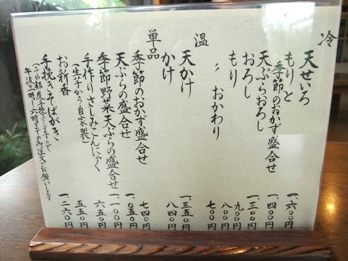 冷
天せいろ 一、六〇〇
もりと
（季節のおかず盛合せ 一、四〇〇
天ぷらおろし 一、三五〇
おろし 九〇〇
もり 八〇〇
〃おかわり 七〇〇
温
天かけ 一、四〇〇
かけ 八四〇
単品
季節のおかず盛合せ 七四〇
天ぷらの盛合せ 一、〇五〇
季節野菜天ぷらの盛合せ 一、一〇〇
手作りさしみこんにゃく 六五〇
（生芋から自家製）
お新香 五五〇
手挽きそばがき 一、二六〇